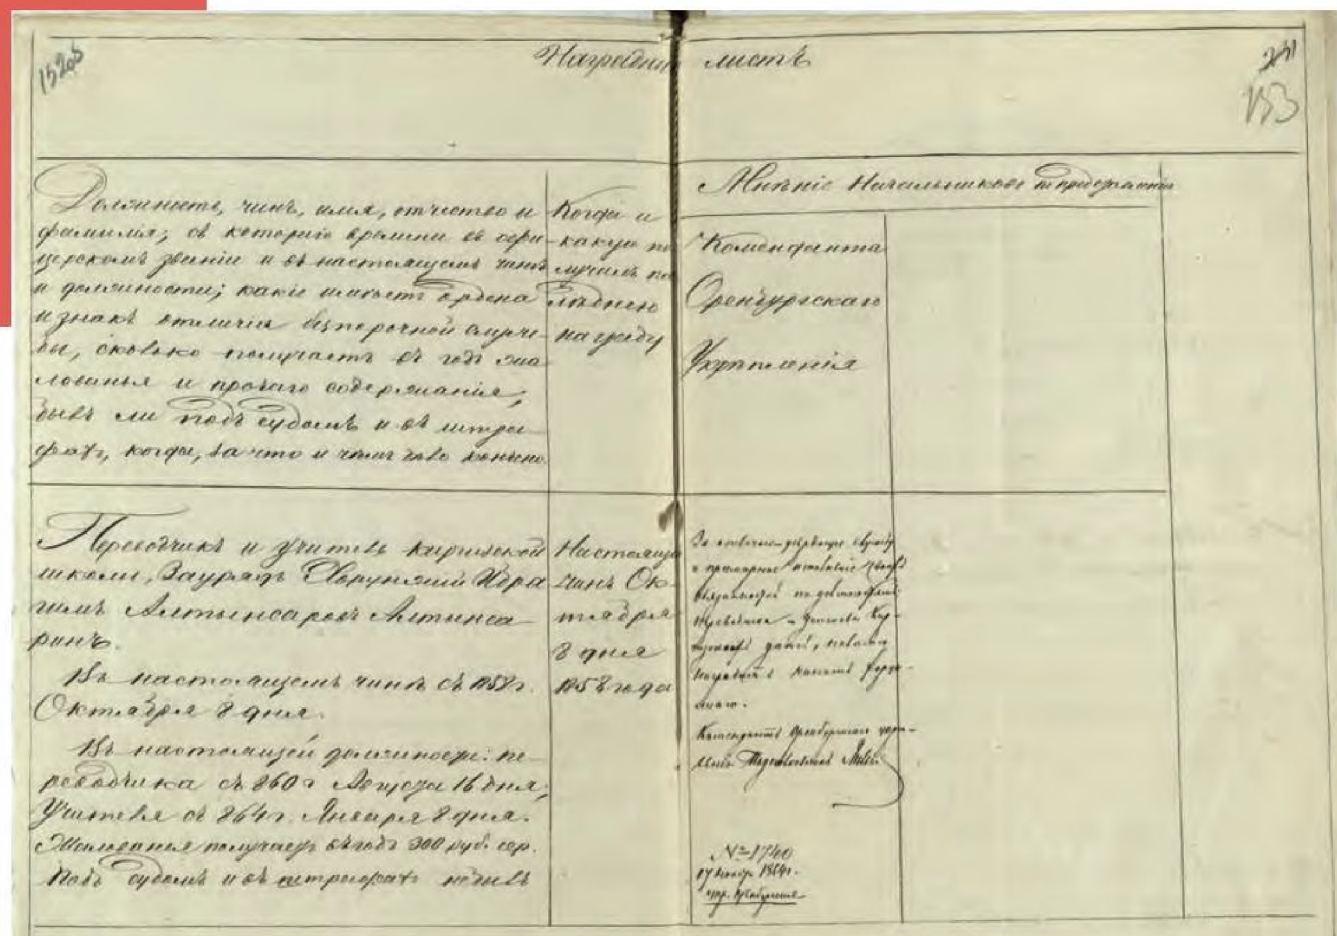 Наградный листъ
153
Должность, чинъ, имя, отчество и
фамилія; съ котораго времени въ офи-
церскомъ званіи и въ настоящемъ чинѣ
и должности; какіе имѣетъ ордена
и знакъ отличія безпорочной служ-
бы, сколько получаетъ въ годъ жа
лованья и прочаго содержанія;
былъ ли подъ судомъ и въ штра
фахъ, когда, за что и чѣмъ дѣло кончено.
Когда и
какую по
лучилъ по
слѣднюю
награду
Мнѣніе Начальниковъ
Коменданта
Оренбургскаго
Укрѣпленія
Переводчикъ и Учитель киргизской
школы, Зауряд Хорунжій Ибра
гимъ Алтынсаровъ Алтынса
ринъ.
Въ настоящемъ чинѣ съ 1858 г.
Октября 8 дня.
Въ настоящей должности: пе-
реводчика съ 860 г Августа 16 дня,
Учителя съ 864 г. Января 8 дня.
Жалованья получаетъ въ годъ 300 руб. сер.
Подъ судомъ и въ штрафахъ небылъ
Настоящій
чинъ Ок-
тября
8 дня
1858 года
За
и примѣрное
Переводчика и Учителя Кир-
гизскихъ дѣтей,
наградить
Комендантъ Оренбургскаго укрѣ-
пленія
№ 1740
1864 г.
укр. Оренбургское